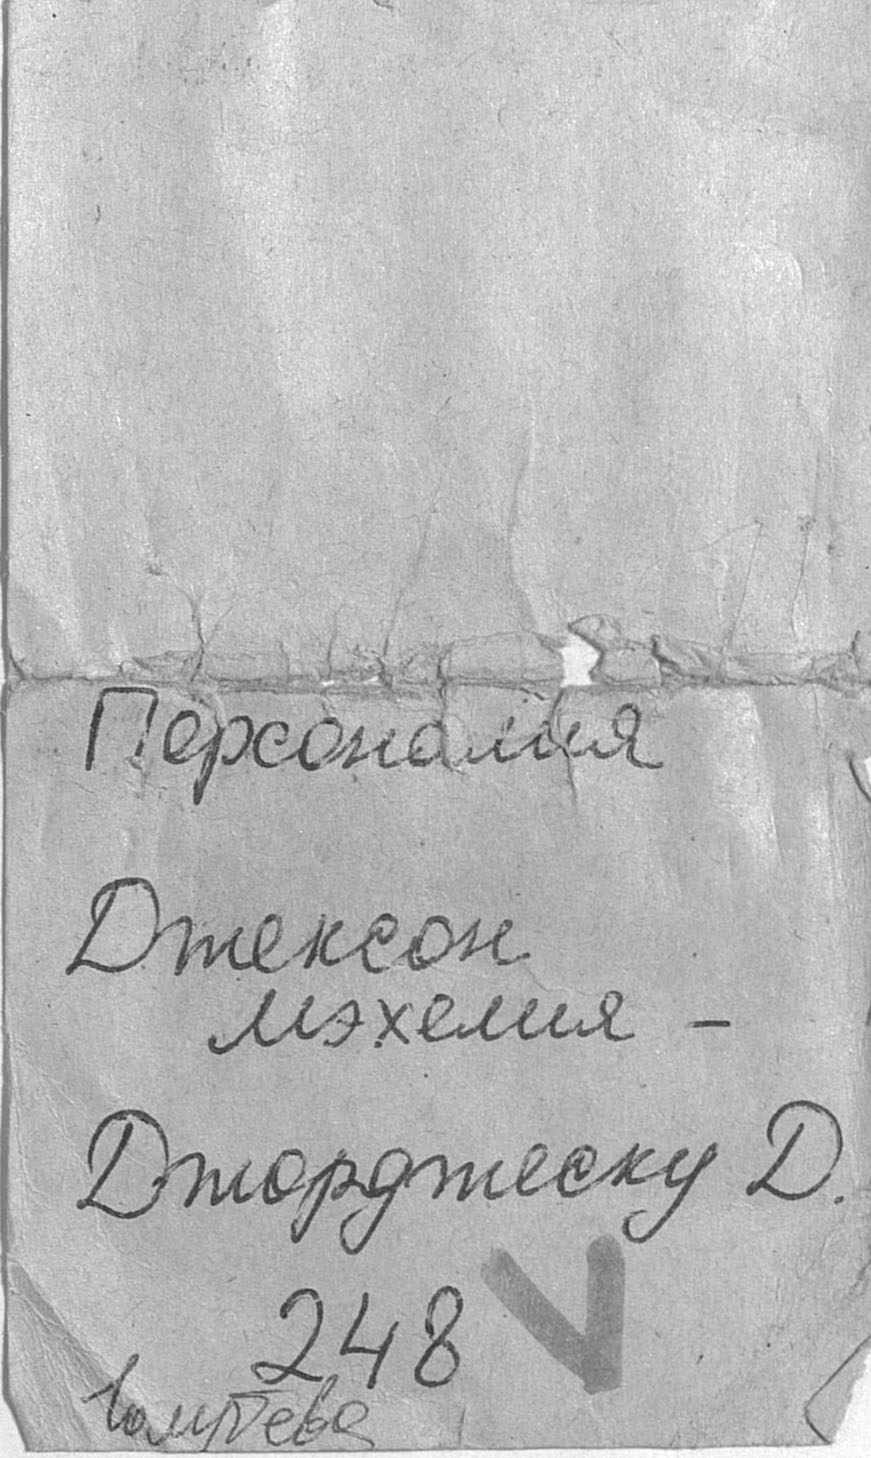 Персоналия
Джексон
Мэхелия –
Джорджеску Д.
248 V
Голубева